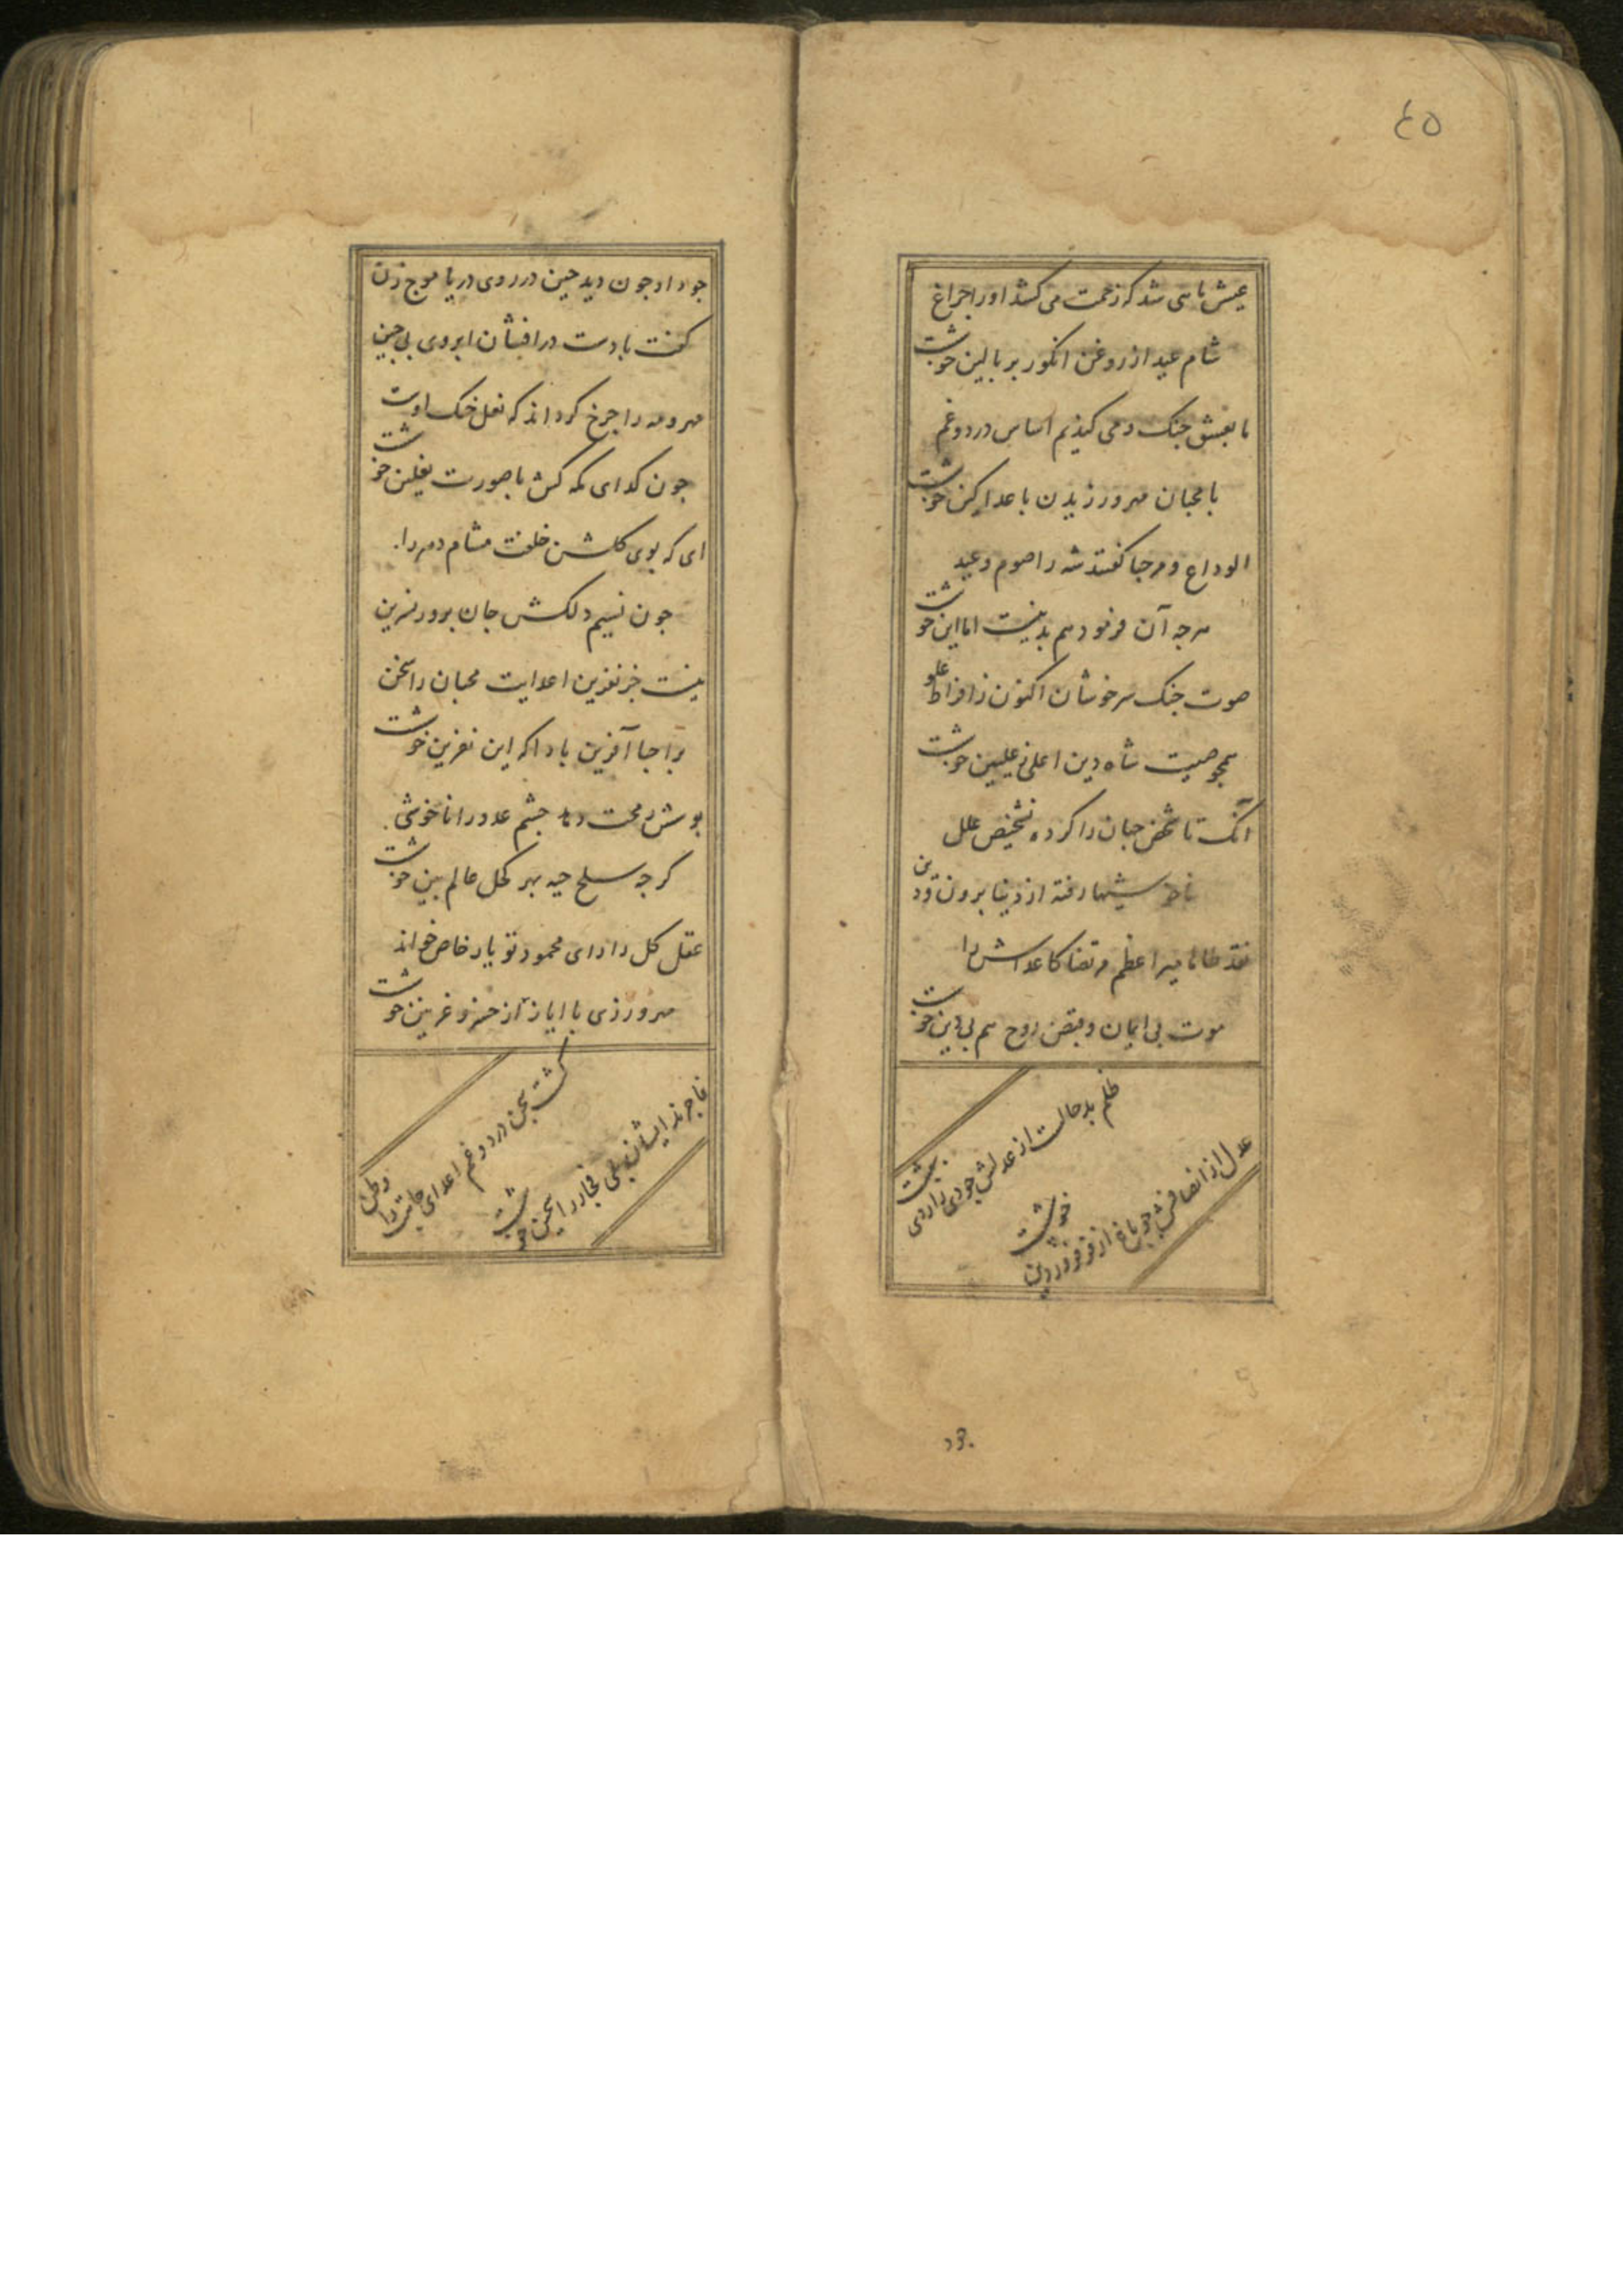 ٤٥
عیش ناسی شد که زحمت می کشد اورا جراغ
شام عید از روغن انکور بر بالین خوشست
ما بعیش جنک و می کندیم اساس درد و غم
با محبان مهر ورزیدن با عدا کین خوشست
الوداع و مرحبا کفتند شه را صوم و عید
هرجه آن فرمود هم بد نیست اما این خوشست
صوت جنک سرخوشان اکنون ز افراط علو
همجو صیت شاه دین اعلی علیین خوشست
آنک تا شخص جهان را کرده تشخیص علل
ناخوشیها رفته از دنیا برون و دین
میر اعظم مرتضا کاعداش را
موت بی ایمان و قبض روح هم بی دین خوشست
ظلم بدحالست از عدلش جو دی
عدل از انصافش جو باغ از فر فروردین خوشست
جود
جود او جون دید جین در روی دریا موج زن
کفت با دست درافشان ابروی بی جین
مهر و مه را جرخ کرداند که نعل خنک اوست
جون کدای مکه کش با صورت نعلین خوشست
ای که بوی کلشن خلقت مشام دهر را
جون نسیم دلکش جان برور نسرین
نیست جز نفرین اعدایت محبان را سخن
مرحبا آفرین بادا که این نفرین خوشست
جشم عدو را ناخوشی
کرجه سلخ حیه بهر کحل عالم بین خوشست
عقل کل را رای محمود تو یار خاص خواند
مهرورزی با ایاز از خسرو غزنین خوشست
کشت سجن درد و غم اعدای جاهت را وطن
فاجرند ایشان بلی فجار را سجین خوشست